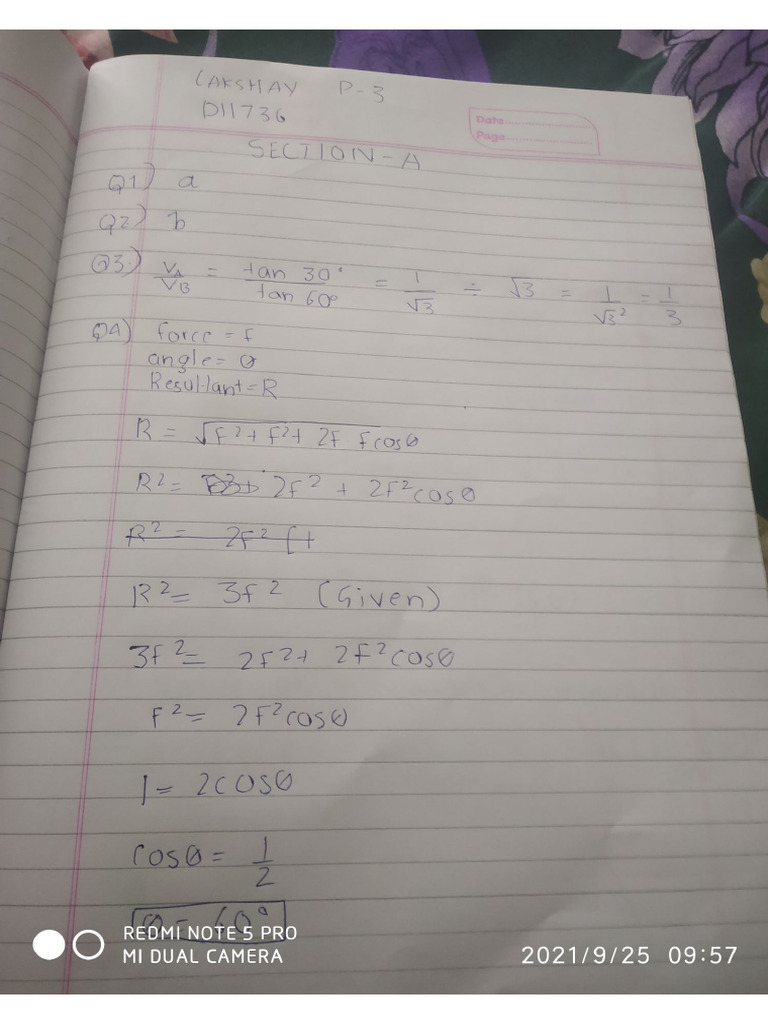 LAKSHAY P-3
D11736
Date
Page
SECTION-A
Q1) a
Q2) b
Q3) VA/VB = tan 30°/tan 60° = 1/√3 ÷ √3 = 1/√3² = 1/3
Q4) force = f
angle = θ
Resultant = R
R = √F²+F²+2F Fcosθ
R² = 2F² + 2F²cosθ
R² = 2F² [+
R² = 3f² (Given)
3f² = 2F²+ 2F²cosθ
F² = 2F²cosθ
1 = 2cosθ
cosθ = 1/2
θ = 60°
REDMI NOTE 5 PRO
MI DUAL CAMERA
2021/9/25 09:57